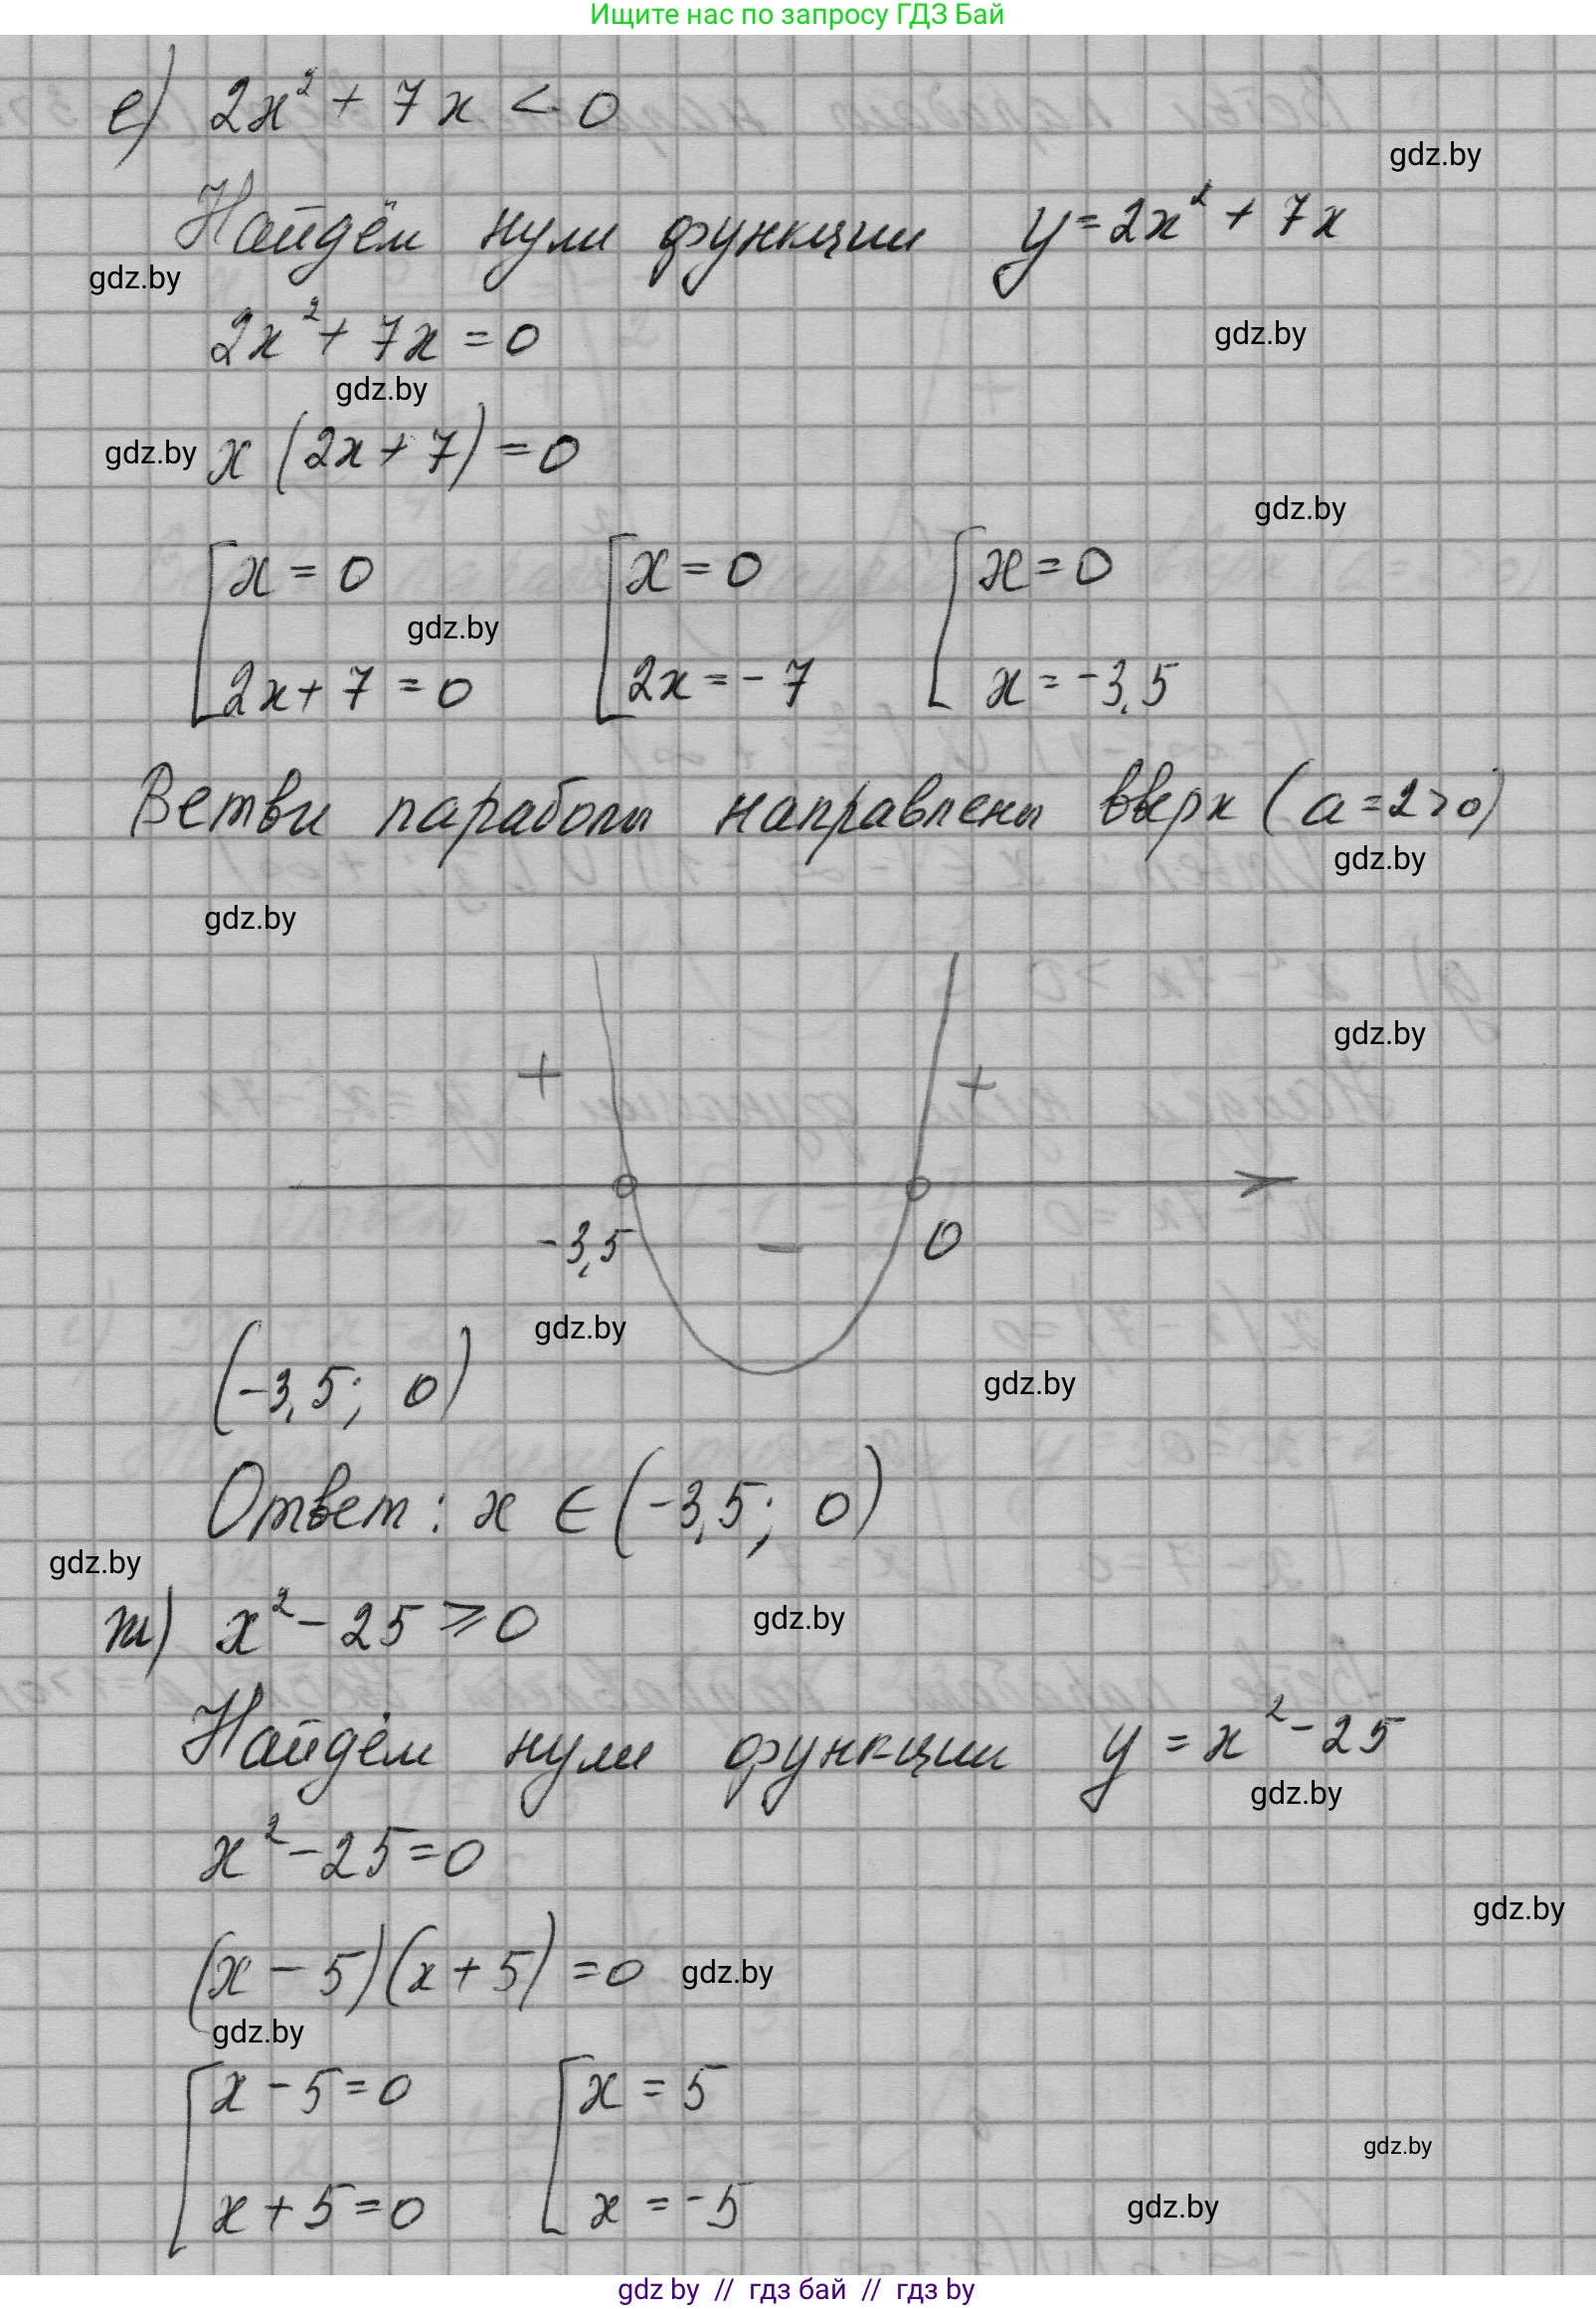 Ищите нас по запросу ГДЗ Бай
е) 2x² + 7x < 0
gdz.by
Найдём нули функции y = 2x² + 7x
gdz.by
2x² + 7x = 0
gdz.by
gdz.by
gdz.by x (2x + 7) = 0
gdz.by
[ x = 0 [ x = 0 [ x = 0
gdz.by
2x + 7 = 0 2x = -7 x = -3,5
Ветви параболы направлены вверх (a = 2 > 0)
gdz.by
gdz.by
gdz.by
+ +
-3,5 - 0
gdz.by
gdz.by
(-3,5; 0)
Ответ: x ∈ (-3,5; 0)
gdz.by
ж) x² - 25 ⩾ 0
gdz.by
Найдём нули функции y = x² - 25
gdz.by
x² - 25 = 0
gdz.by
(x - 5)(x + 5) = 0 gdz.by
gdz.by
[ x - 5 = 0 [ x = 5
gdz.by
x + 5 = 0 x = -5
gdz.by
gdz by // гдз бай // гдз by